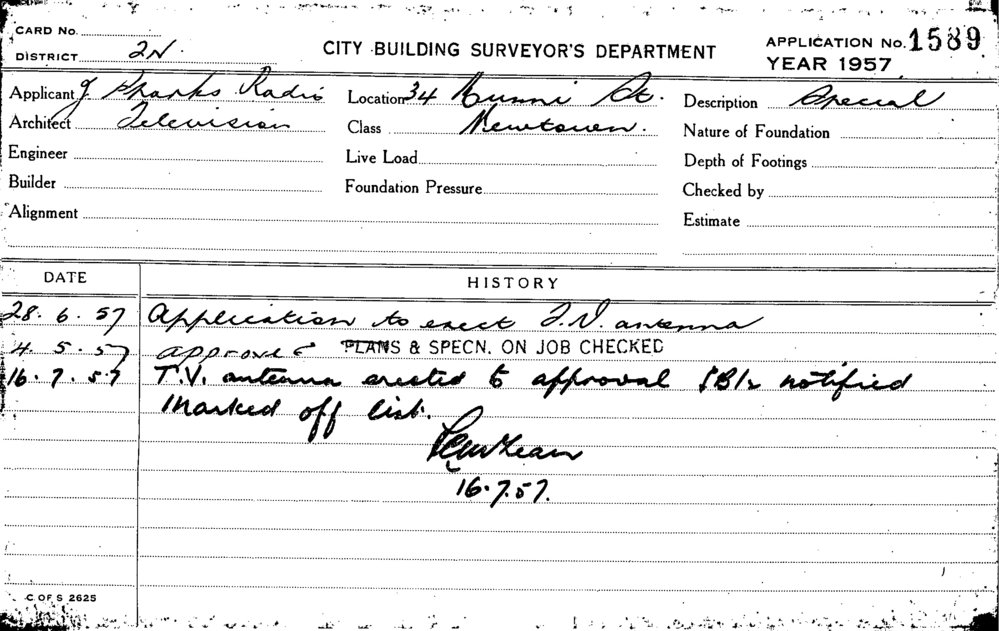 CARD No.
DISTRICT 2N.
CITY BUILDING SURVEYOR'S DEPARTMENT
APPLICATION No. 1589
YEAR 1957
Applicant J. Sparks Radio Location 34 St. Description Special
Architect Television Class Newtown. Nature of Foundation
Engineer Live Load Depth of Footings
Builder Foundation Pressure Checked by
Alignment Estimate
DATE HISTORY
28. 6. 57 Application to erect T.V. antenna
4. 5. 57 approve PLANS & SPECN. ON JOB CHECKED
16. 7. 57 T.V. antenna erected to approval notified
Marked off list.
16.7.57.
C OF S 2625